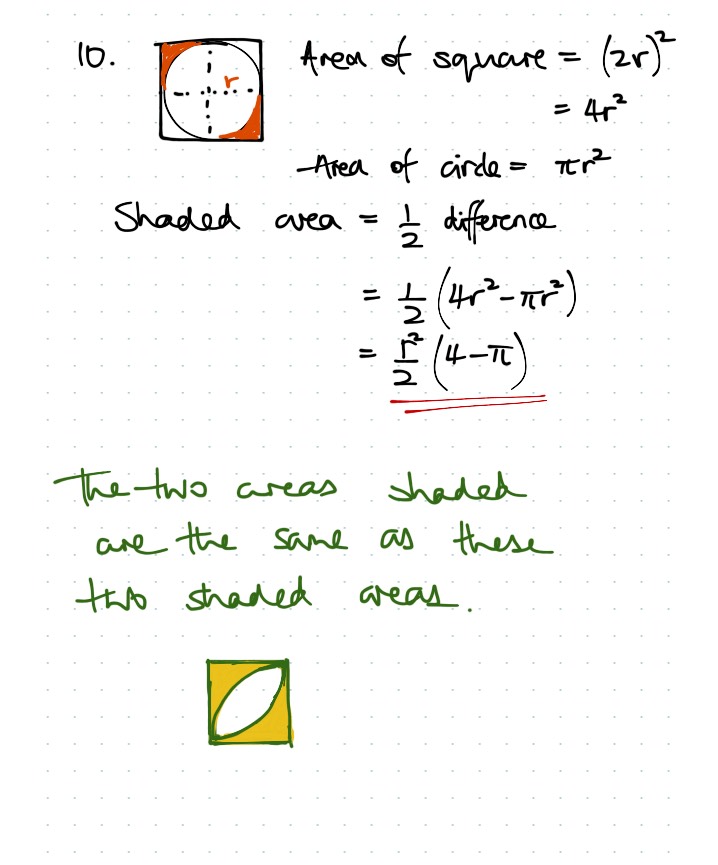 10.
r
Area of square = (2r)²
= 4r²
Area of circle = πr²
Shaded area = 1/2 difference
= 1/2 (4r² - πr²)
= r²/2 (4 - π)
The two areas shaded
are the same as these
two shaded areas.